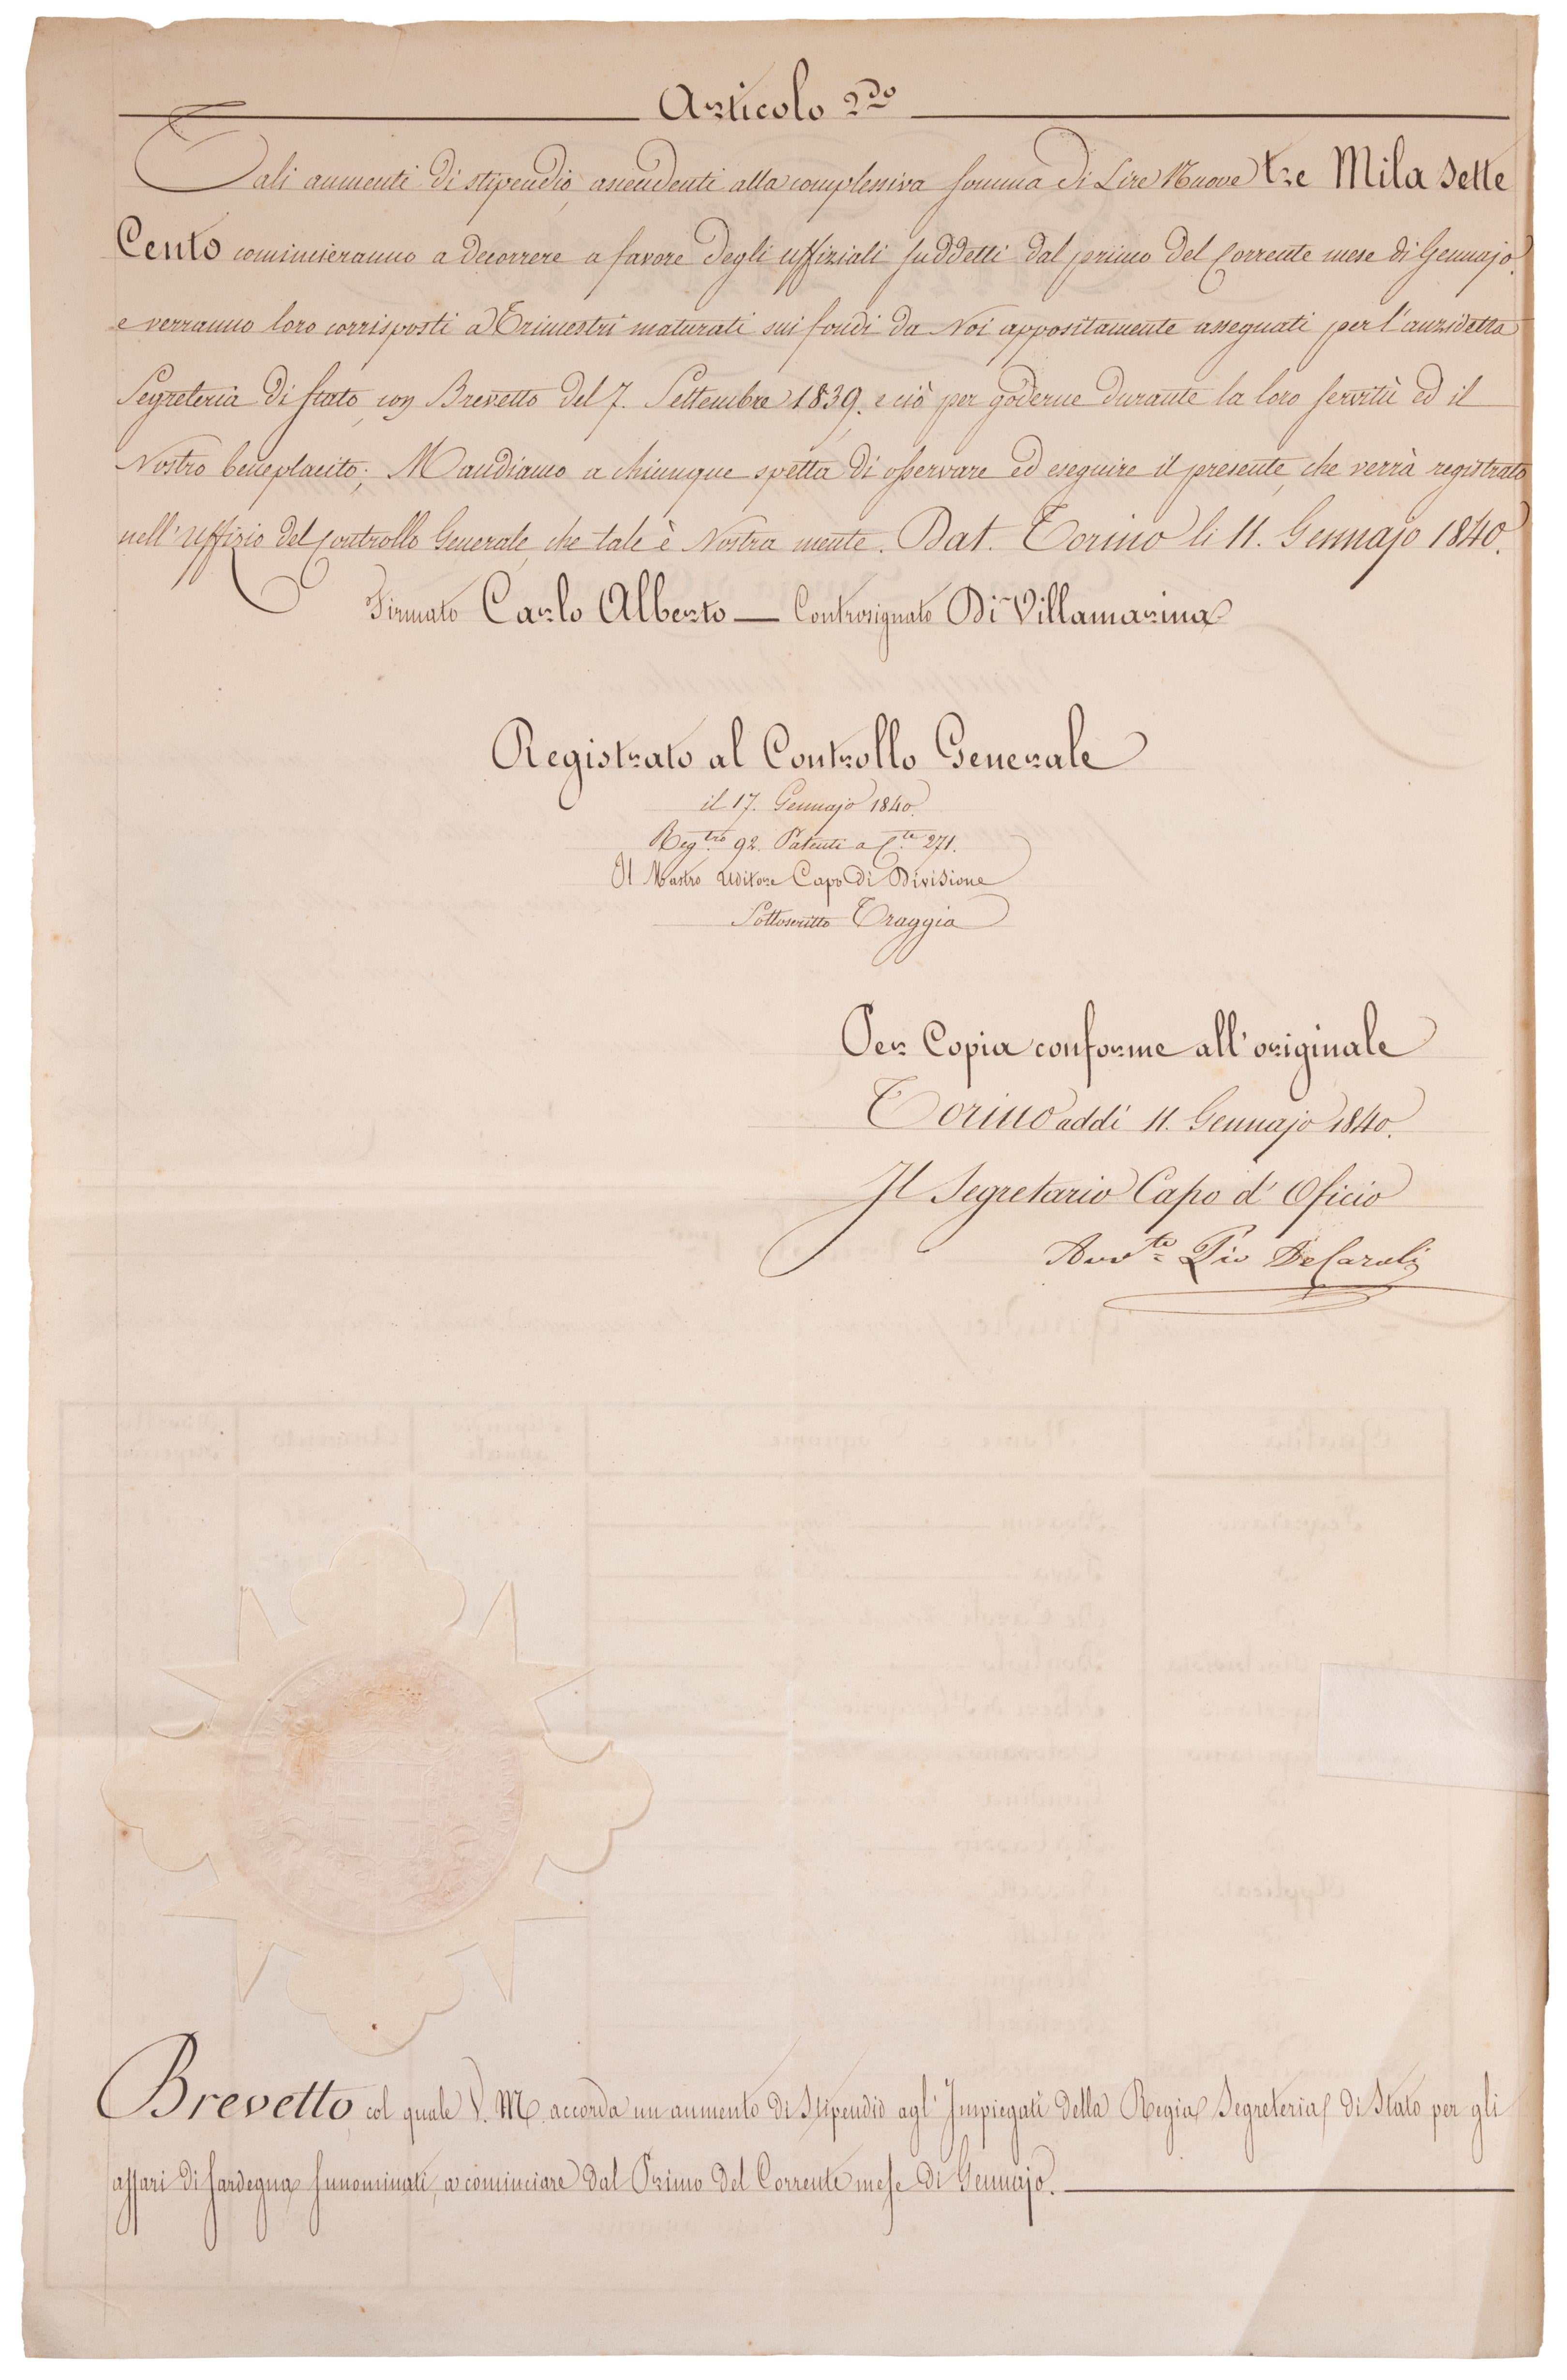 Articolo 2.do
Tali aumenti di stipendio, ascendenti alla complessiva somma di Lire Nuove tre Mila Sette
Cento comincieranno a decorrere a favore degli uffiziali suddetti dal primo del corrente mese di Gennajo,
e verranno loro corrisposti a Trimestri maturati sui fondi da Noi appositamente assegnati per l'anzidetta
Segreteria di Stato, con Brevetto del 7. Settembre 1839. e ciò per goderne durante la loro servitù ed il
Nostro beneplacito; Mandiamo a chiunque spetta di osservare ed eseguire il presente, che verrà registrato
nell'Uffizio del Controllo Generale, che tale è Nostra mente. Dat. Torino li 11. Gennajo 1840.
Firmato Carlo Alberto — Controsignato Di Villamarina
Registrato al Controllo Generale
il 17. Gennajo 1840.
Reg.tro 92. Patenti a C.te 271.
Il Mastro Uditore Capo di Divisione
Sottoscritto Traggia
Per Copia conforme all'originale
Torino addì 11. Gennajo 1840.
Il Segretario Capo d'Oficio
Avv.to Pio DeCaroli
Brevetto, col quale V. M. accorda un aumento di Stipendio agl'Impiegati della Regia Segreteria di Stato per gli
affari di Sardegna sunnominati, a cominciare dal Primo del Corrente mese di Gennajo.